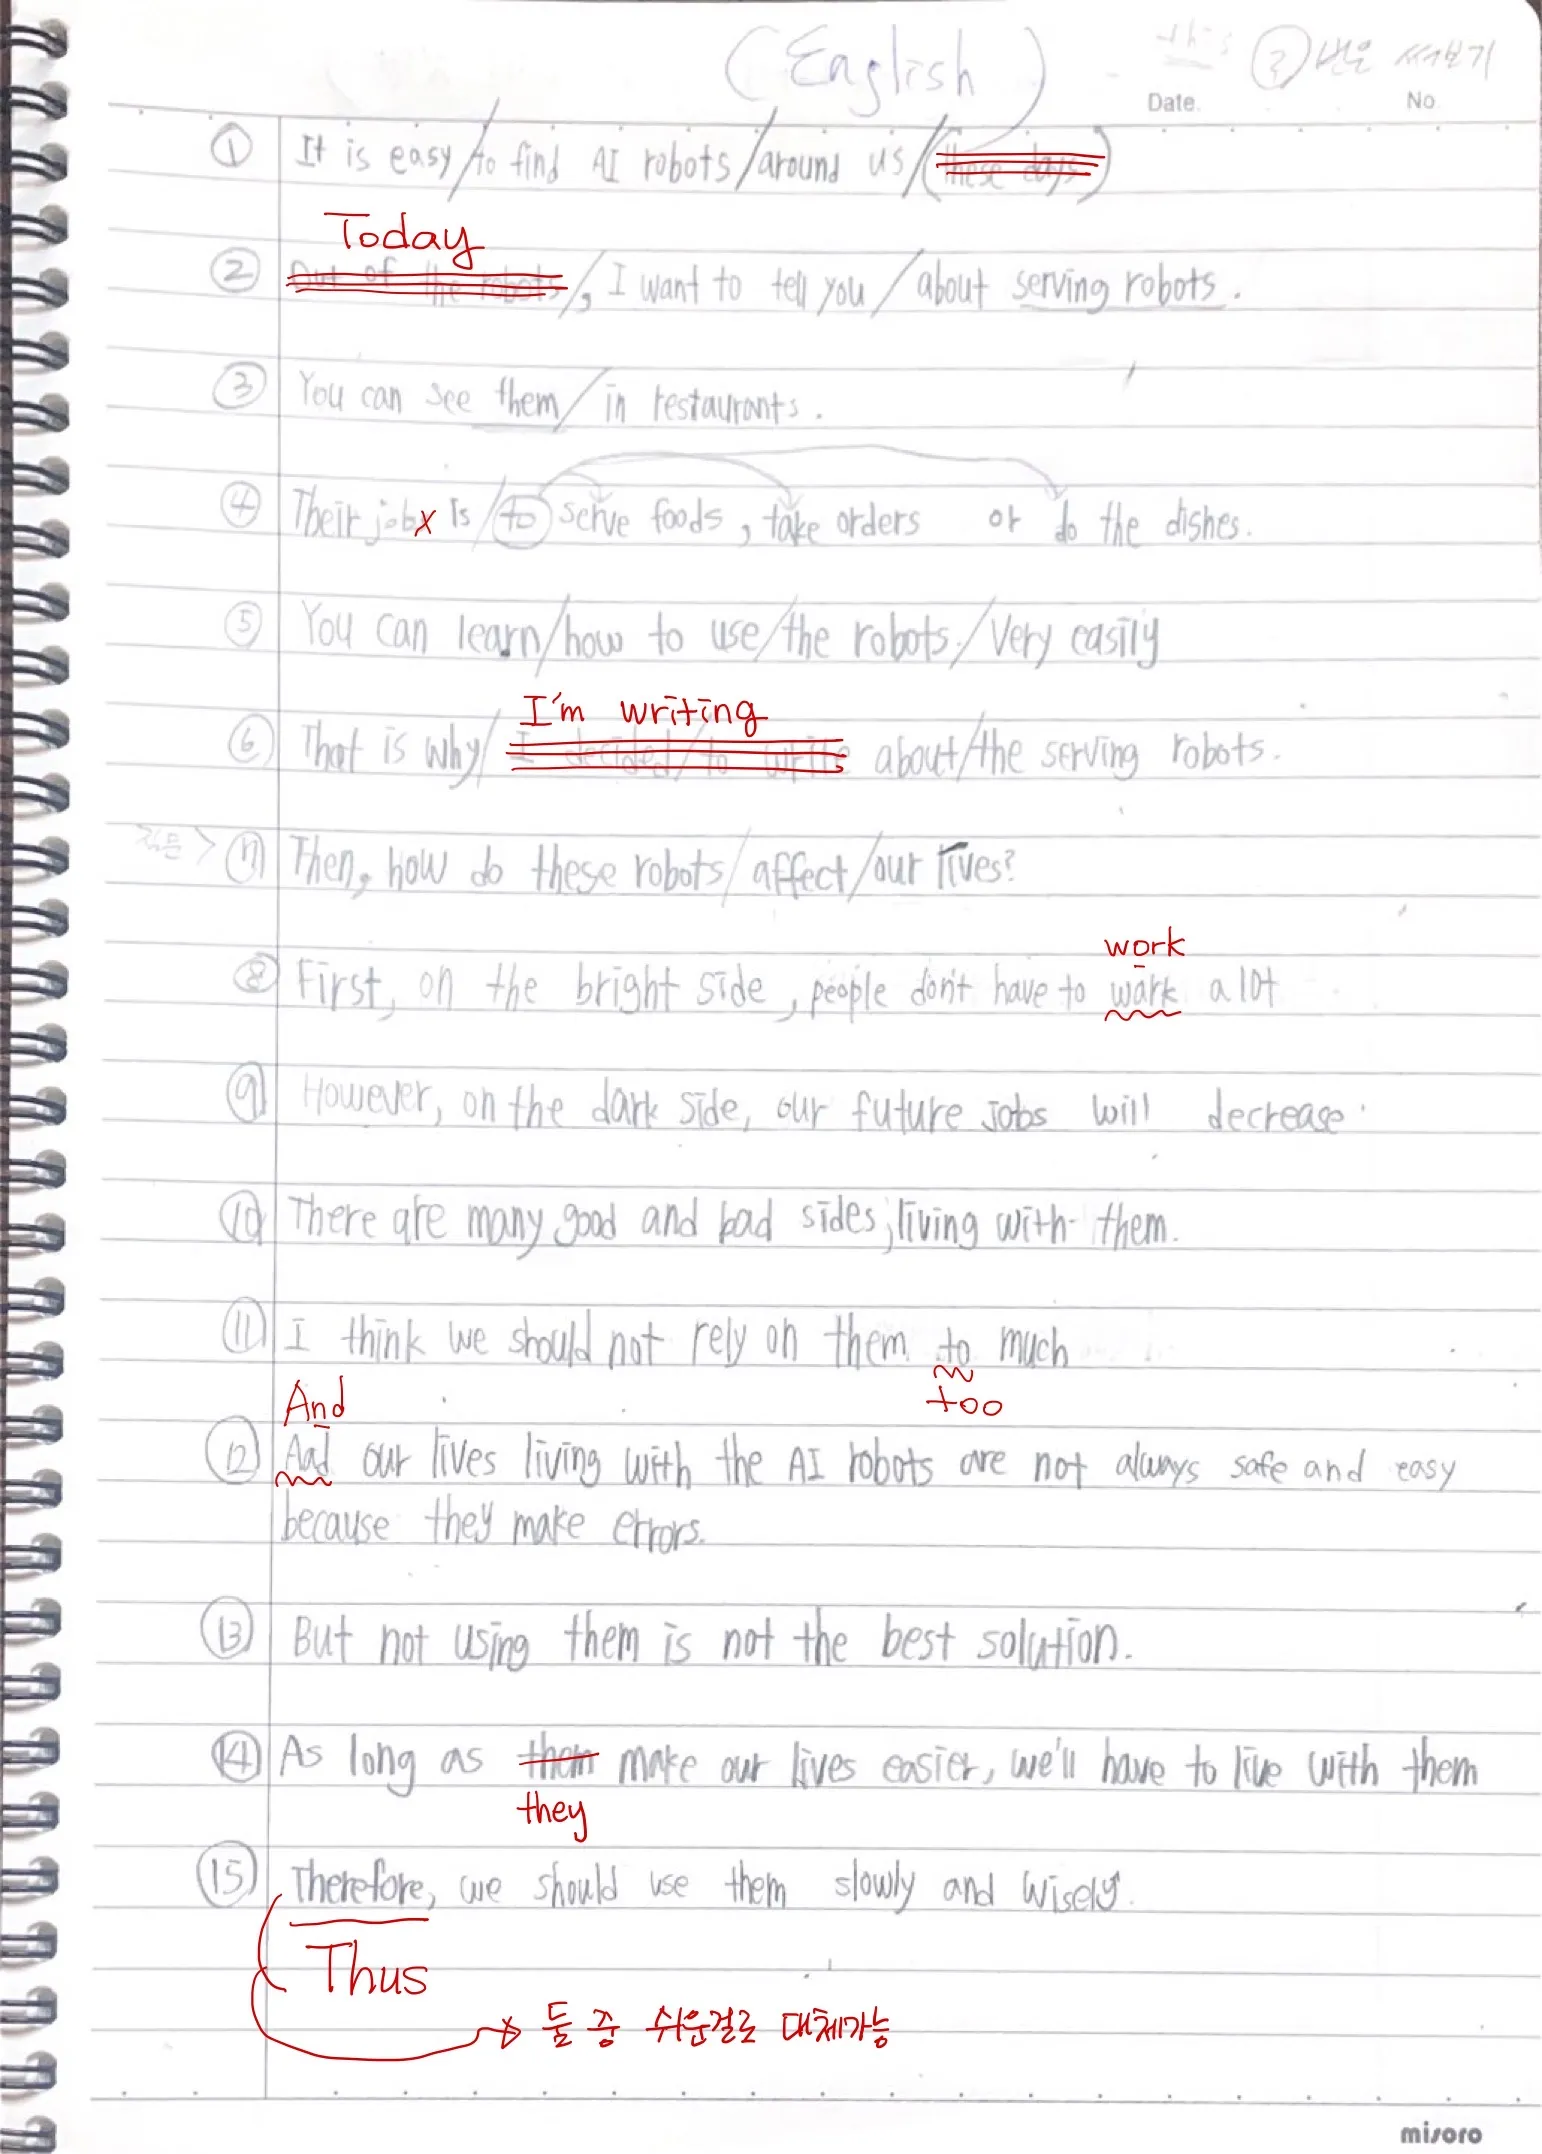 (English) this ②번은 써보기
Date. No
① It is easy/to find AI robots/around us/(these days)
Today
② Out of the robots/, I want to tell you/about serving robots.
③ You can see them/in restaurants.
④ Their jobx is/to serve foods, take orders or do the dishes.
⑤ You can learn/how to use/the robots./very easily
I'm writing
⑥ That is why/I decided/to write about/the serving robots.
질문 > ⑦ Then, how do these robots/affect/our lives?
work
⑧ First, on the bright side, people don't have to wark a lot
⑨ However, on the dark side, our future jobs will decrease.
⑩ There are many good and bad sides, living with them.
⑪ I think we should not rely on them to much
And too
⑫ Aad our lives living with the AI robots are not always safe and easy
because they make errors.
⑬ But not using them is not the best solution.
⑭ As long as them make our lives easier, we'll have to live with them
they
⑮ Therefore, we should use them slowly and wisely.
Thus
둘 중 쉬운걸로 대체가능
misoro